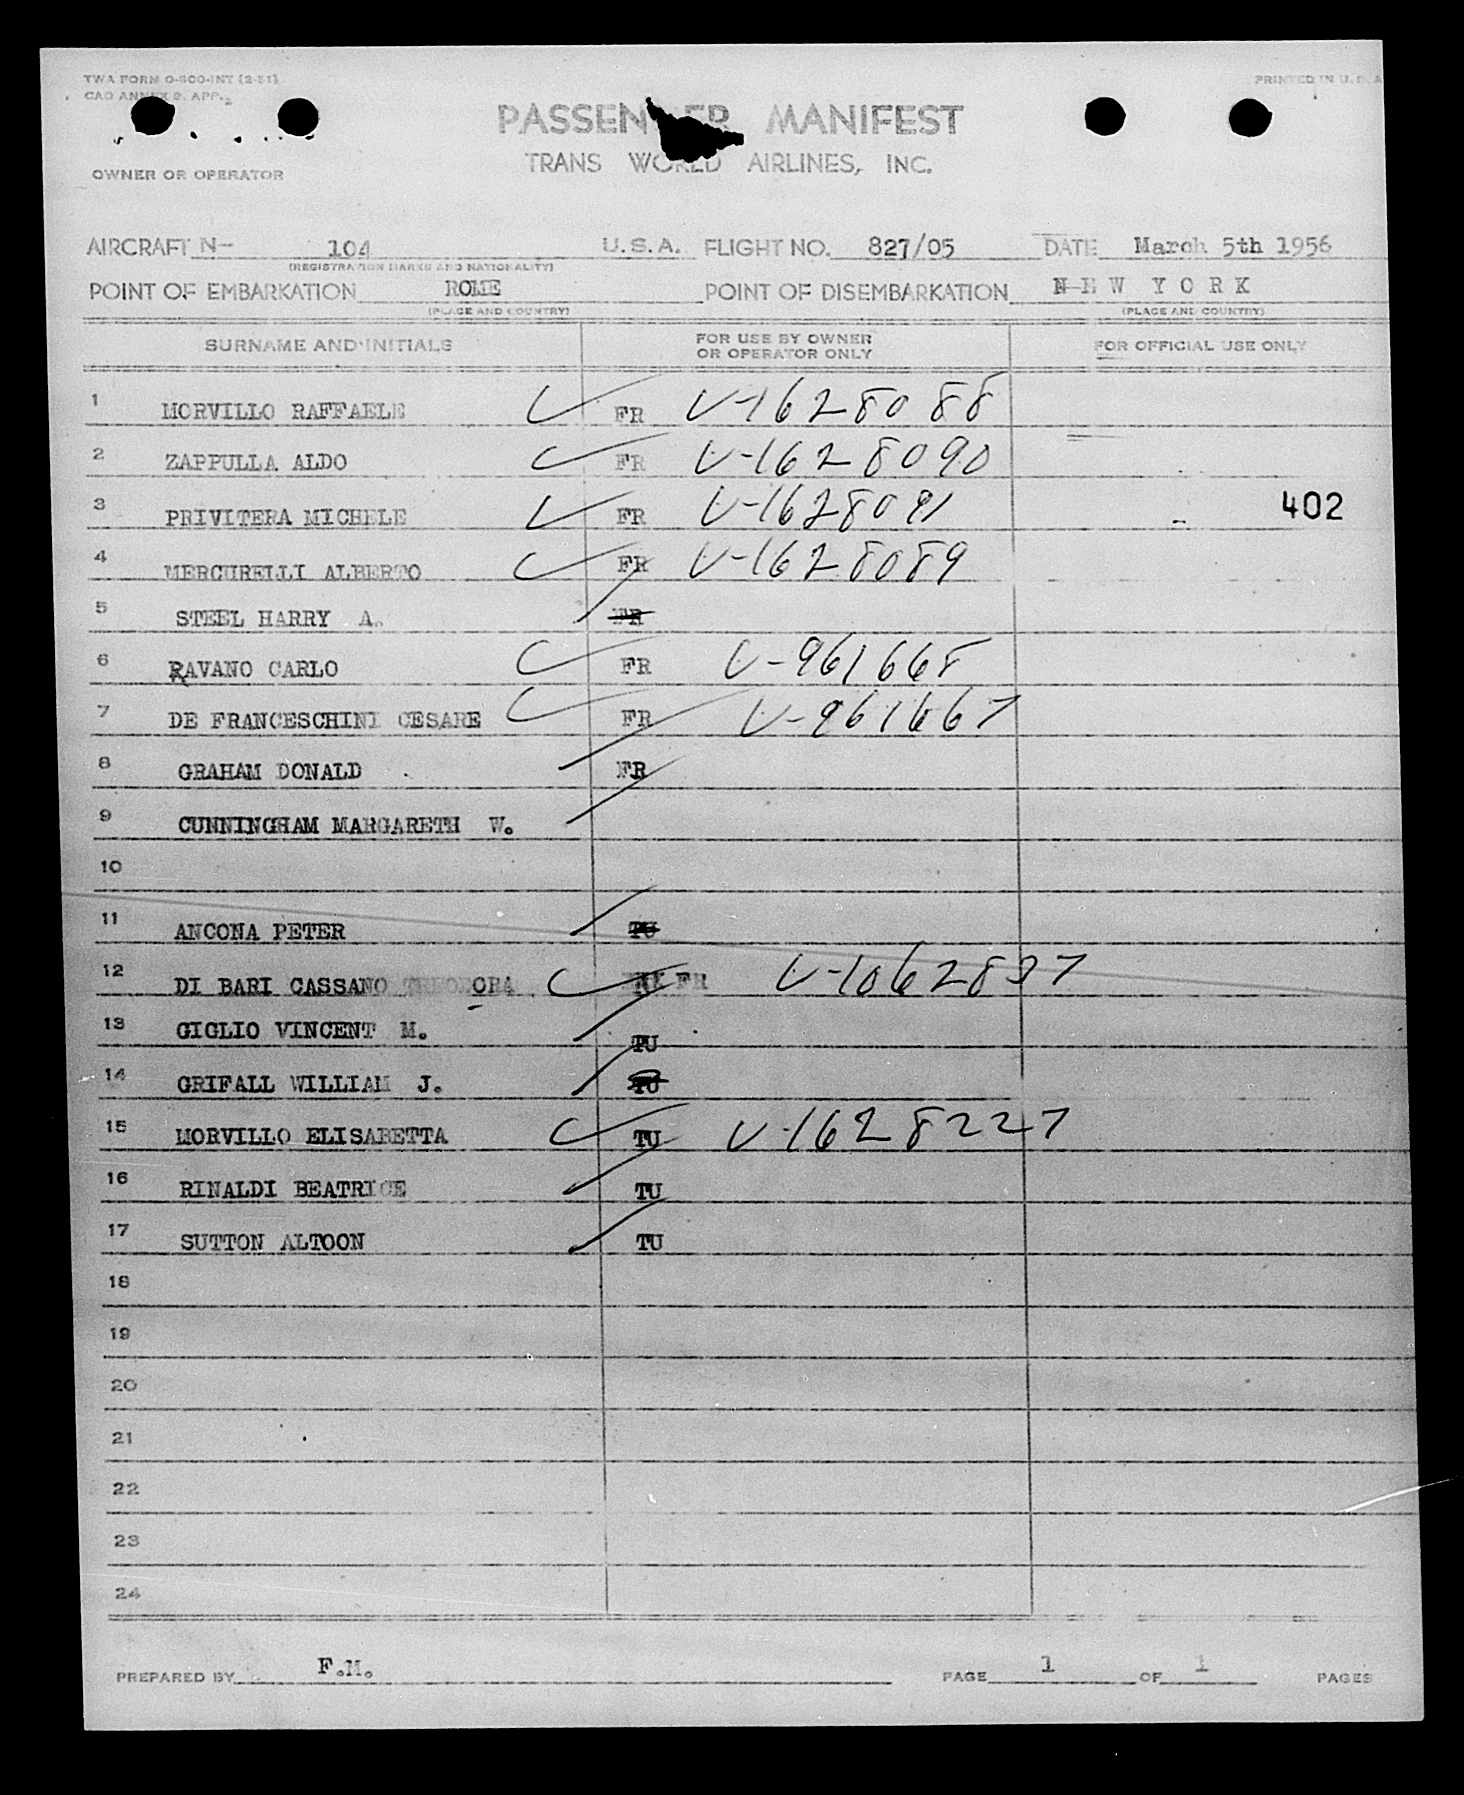 TWA FORM O-800-INT (2-51)
PRINTED IN U. S. A
CAO ANNEX 9. APP.
PASSENGER MANIFEST
TRANS WORLD AIRLINES, INC.
OWNER OR OPERATOR
AIRCRAFT N- 104 U.S.A. FLIGHT NO. 827/05 DATE March 5th 1956
(REGISTRATION MARKS AND NATIONALITY)
POINT OF EMBARKATION ROME POINT OF DISEMBARKATION NEW YORK
(PLACE AND COUNTRY) (PLACE AND COUNTRY)
SURNAME AND INITIALS FOR USE BY OWNER OR OPERATOR ONLY FOR OFFICIAL USE ONLY
1 MORVILLO RAFFAELE FR V-1628088
2 ZAPPULLA ALDO FR V-1628090
3 PRIVITERA MICHELE FR V-1628091 402
4 MERCURELLI ALBERTO FR V-1628089
5 STEEL HARRY A. FR
6 RAVANO CARLO FR V-961668
7 DE FRANCESCHINI CESARE FR V-961667
8 GRAHAM DONALD FR
9 CUNNINGHAM MARGARETH W.
10
11 ANCONA PETER TU
12 DI BARI CASSANO FR V-1062837
13 GIGLIO VINCENT M. TU
14 GRIFALL WILLIAM J. TU
15 MORVILLO ELISABETTA TU V-1628227
16 RINALDI BEATRICE TU
17 SUTTON ALTOON TU
18
19
20
21
22
23
24
PREPARED BY F.M. PAGE 1 OF 1 PAGES